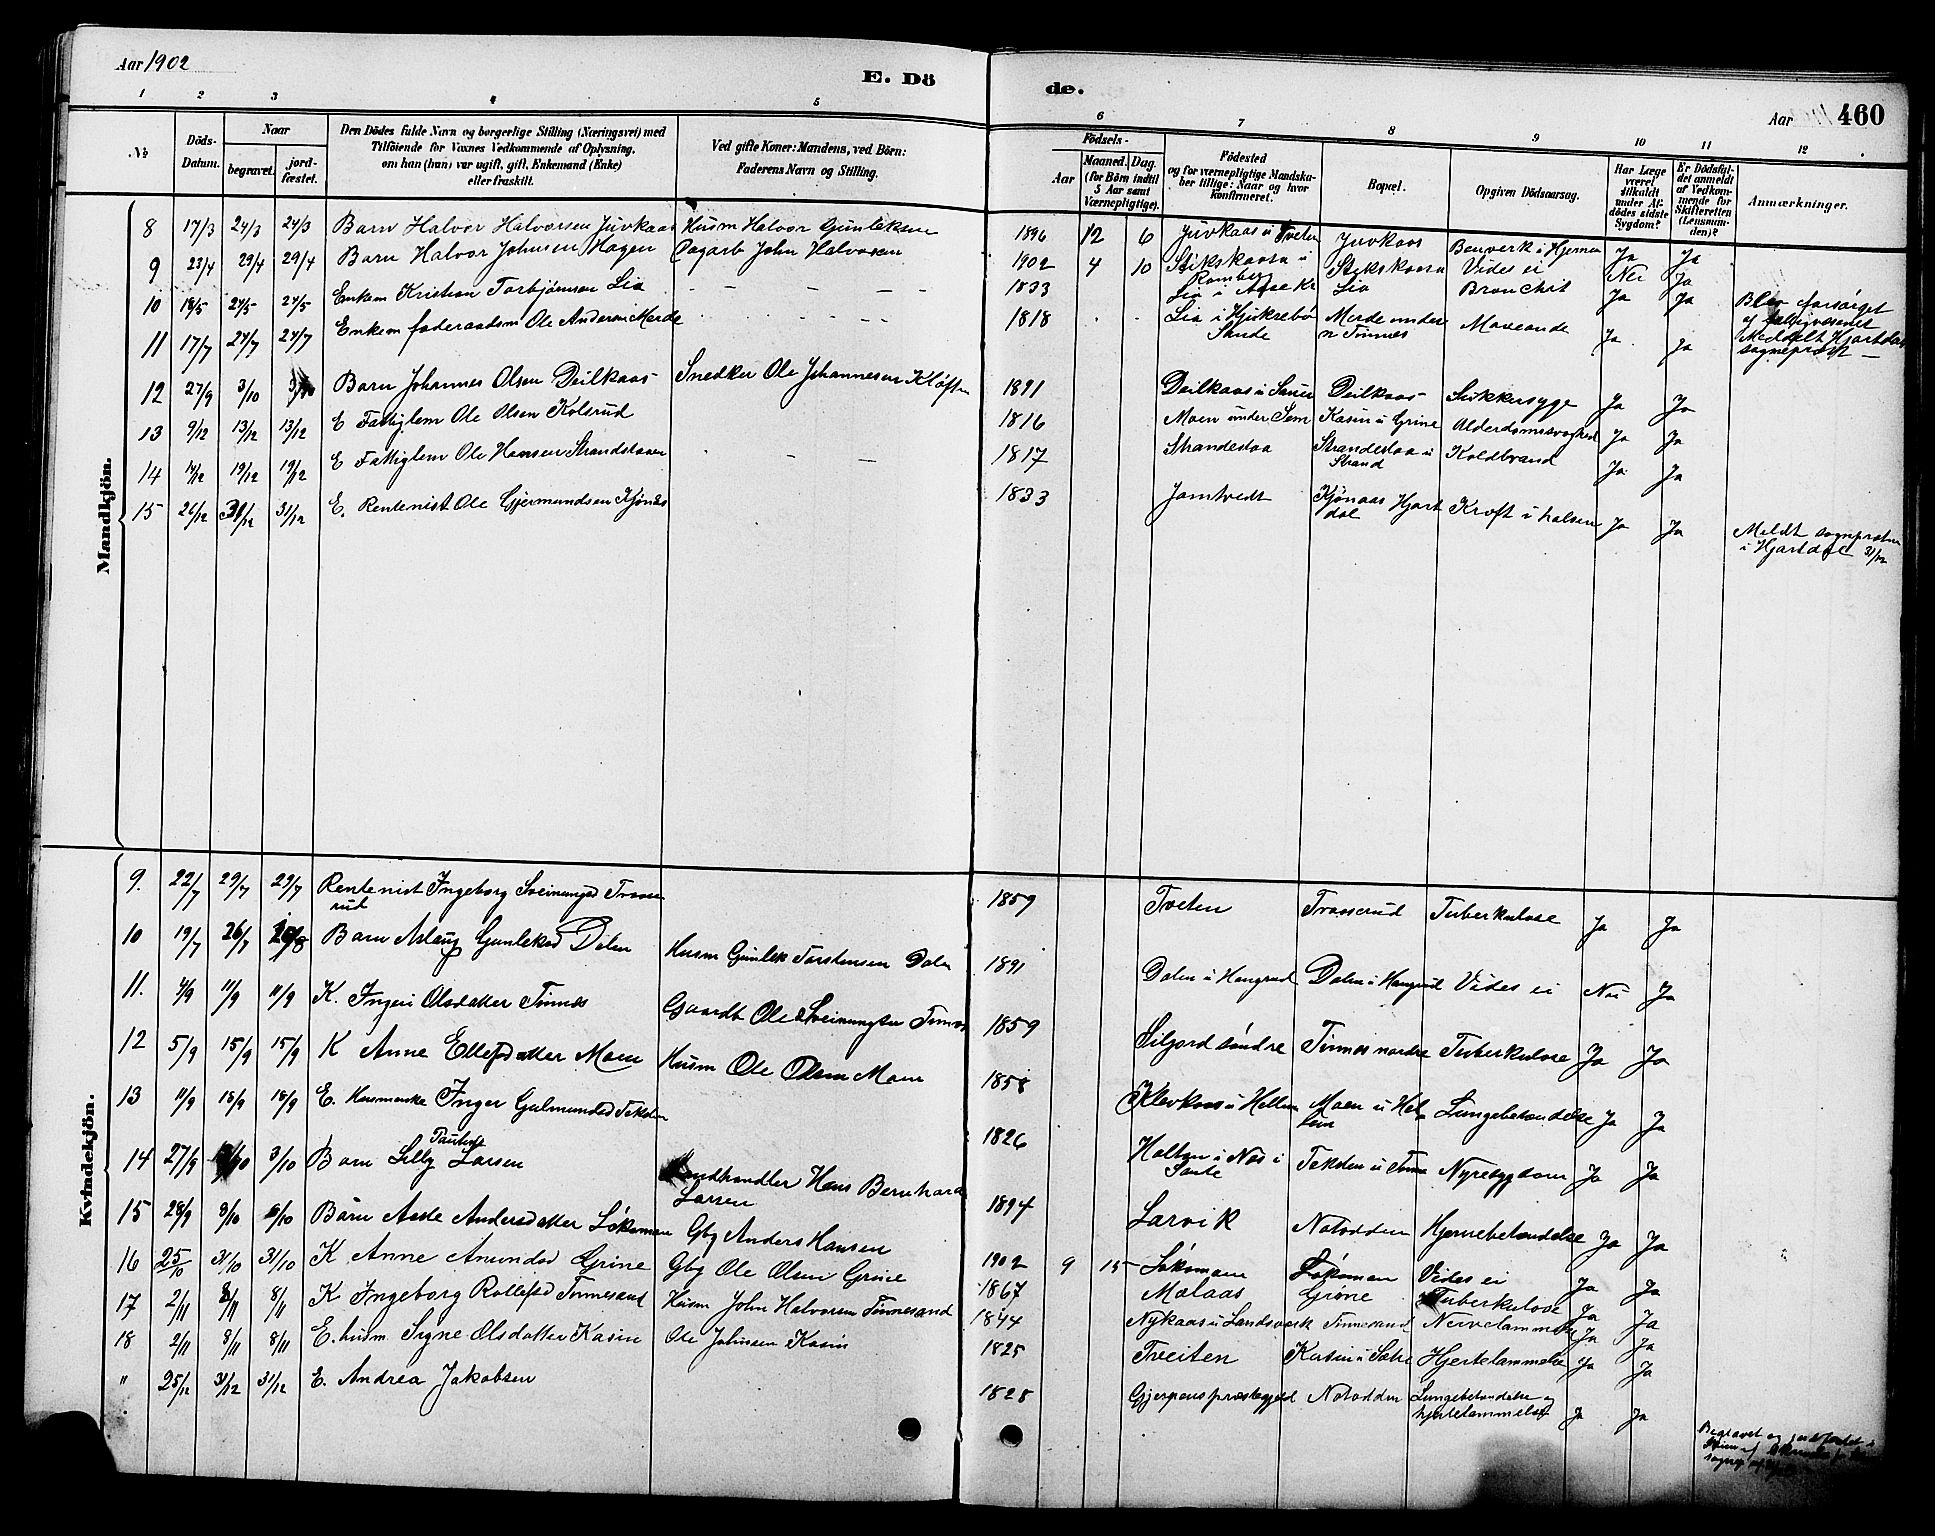 Aar 1902
E. Dö
de.
Aar 460
1 2 3 4 5 6 7 8 9 10 11 12
№
Döds-
Datum.
Naar
begravet.
jord-
fæstet.
Den Dödes fulde Navn og borgerlige Stilling (Næringsvei) med
Tilföiende for Voxnes Vedkommende af Oplysning,
om han (hun) var ugift, gift, Enkemand (Enke)
eller fraskilt.
Ved gifte Koner: Mandens, ved Börn:
Faderens Navn og Stilling.
Födsels-
Aar
Maaned. Dag.
(for Börn indtil
5 Aar samt
Værnepligtige).
Födested
og for værnepligtige Mandska-
ber tillige: Naar og hvor
konfirmeret.
Bopæl.
Opgiven Dödsaarsag.
Har Læge
været
tilkaldt
under Af-
dödes sidste
Sygdom?
Er Dödsfal-
det anmeldt
af Vedkom-
mende for
Skifteretten
(Lensman-
den)?
Anmærkninger.
Mandkjön.
8 17/3 24/3 24/3 Barn Halvor Halvorsen Juvkaas Husm Halvor Gunleksen 1896 12 6 Juvkaas u Tveten Juvkaas Benverk i Hjernen Ja Ja
9 23/4 29/4 29/4 Barn Halvor Johnsen Hagen Dagarb John Halvorsen 1902 4 10 Stikskaasa u Romberg Stikskaasa Vides ei Nei Ja
10 18/5 24/5 24/5 Enkem Kristian Torbjørnsen Lia 1833 Lia Bronchit Ja Ja Blev forsørget af fattigvæsenet
11 17/7 24/7 24/7 Enkem føderaadsm Ole Andersen Merde 1818 Lia i Hjuksebø Sande Merde under n Tinnes Maveonde Ja Ja Meddelt Hjartdal sogneprest
12 27/9 3/10 Barn Johannes Olsen Deilkaas Snedker Ole Johannesen Kløften 1891 Deilkaas u Sauer Deilkaas Sukkersyge Ja Ja
13 9/12 13/12 13/12 E Fattiglem Ole Olsen Kolerud 1816 Moen under Sem Kasin u Grine Alderdomssvaghed Ja Ja
14 14/12 19/12 19/12 E Fattiglem Ole Hansen Strandstaaen 1817 Strandestaa Strandestaa u Strand Koldbrand Ja Ja
15 26/12 31/12 31/12 E. Rentenist Ole Gjermundsen Kjønås 1833 Jamtvedt Kjønaas Hjartdal Kræft i halsen Ja Ja Meldt sogneprästen i Hjartdal 31/12
Kvindekjön.
9. 22/7 29/7 29/7 Rentenist Ingeborg Sveinungsd Traaserud 1859 Tveten Traaserud Tuberkulose Ja Ja
10 19/7 26/7 Barn Aslaug Gunleksd Dalen Husm Gunlek Torstensen Dalen 1891 Dalen u Haugrud Dalen u Haugrud Vides ei Nei Ja
11. 4/9 11/9 11/9 K. Ingeri Olsdatter Tinnes Gaardbr Ole Sveinungsen Tinnes 1859 Siljord søndre Tinnes nordre Tuberkulose Ja Ja
12 5/9 15/9 15/9 K Anne Ellefsdatter Moen Husm Ole Olsen Moen 1858 Klevkaas u Hellem Moen u Hellem Lungebetændelse Ja Ja
13 11/9 18/9 18/9 E. Husmenke Inger Gulmundsd Teksten 1826 Holten i Nes i Sante Teksten u Tinne Nyresygdom Ja Ja
14 27/9 3/10 Barn Lilly Larsen Landhandler Hans Bernhard Larsen 1894 Larvik Notodden Hjernebetændelse Ja Ja
15 28/9 8/10 Barn Aaste Andersdatter Løkaman Gbg Anders Hansen 1902 9 15 Løkaman Løkaman Vides ei Ja Ja
16 25/10 31/10 31/10 K Anne Amundsd Grine Gbg Ole Olsen Grine 1867 Malaas Grine Tuberkulose Ja Ja
17 2/11 8/11 8/11 K Ingeborg Rollefsd Tinnesand Husm John Halvorsen Tinnesand 1844 Nykaas u Landsverk Tinnesand Nervelammelse Ja Ja
18 2/11 8/11 8/11 E. husm. Signe Olsdatter Kasin Ole Johnsen Kasin 1825 Tveiten Kasin u Satre Hjertelammelse Ja Ja
" 25/12 31/12 31/12 E. Andrea Jakobsen 1828 Gjerpens præstegjeld Notodden Lungebetændelse og hjertelammelse Ja Ja Begravet og jordfæstet